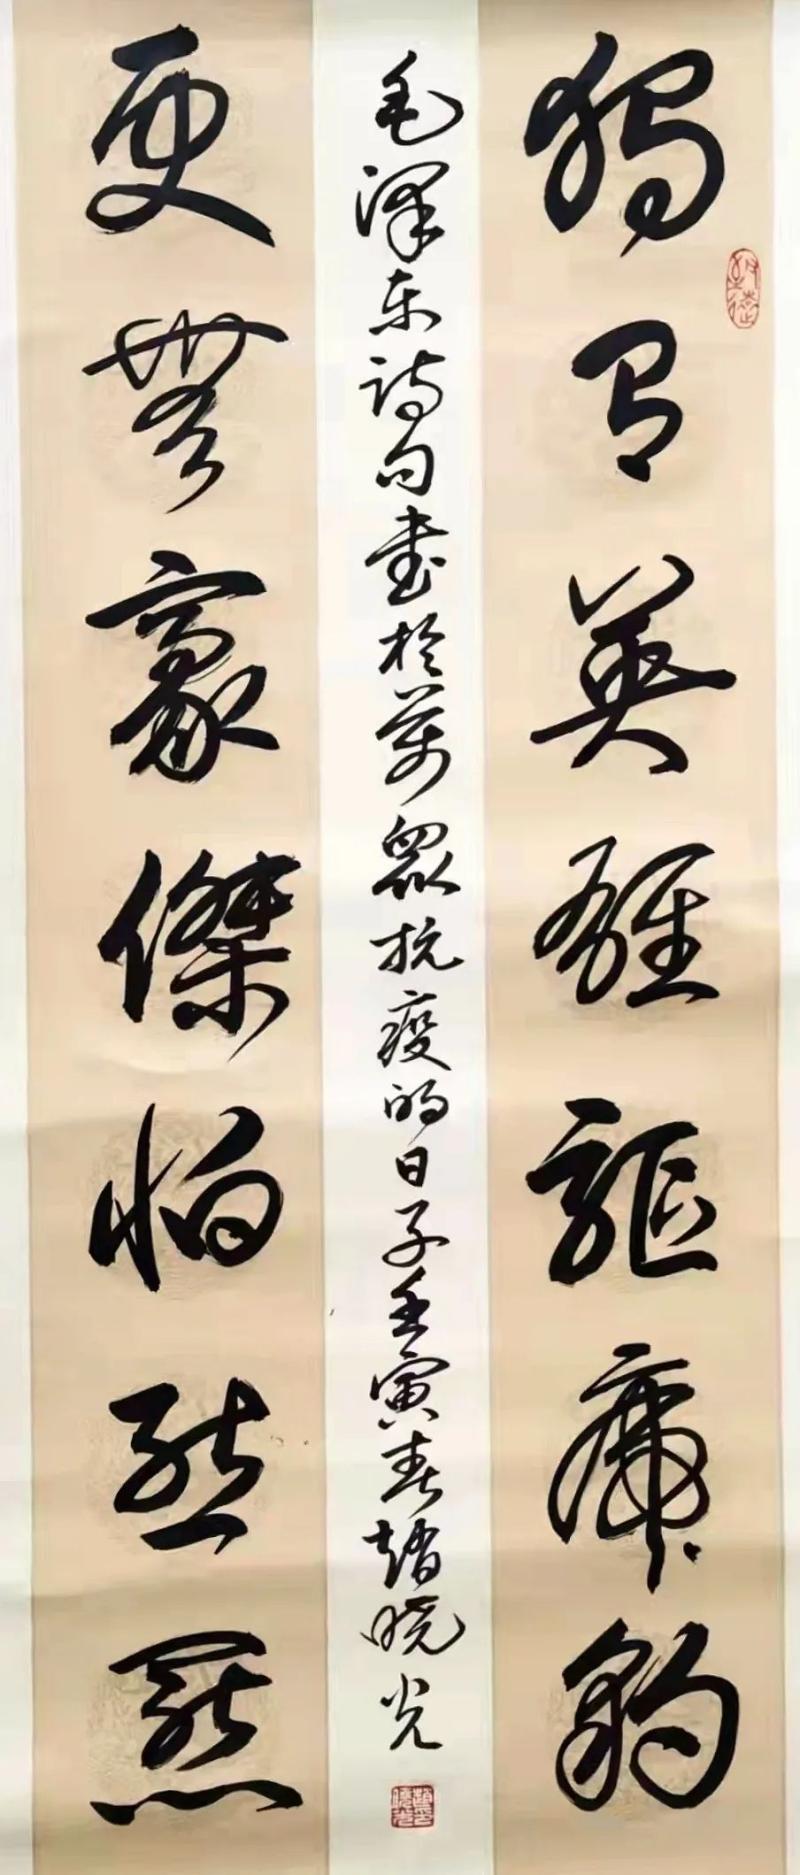 獨有英雄驅虎豹
毛泽东诗句書於萬眾抗疫的日子壬寅春趙晓光
更無豪傑怕熊羆